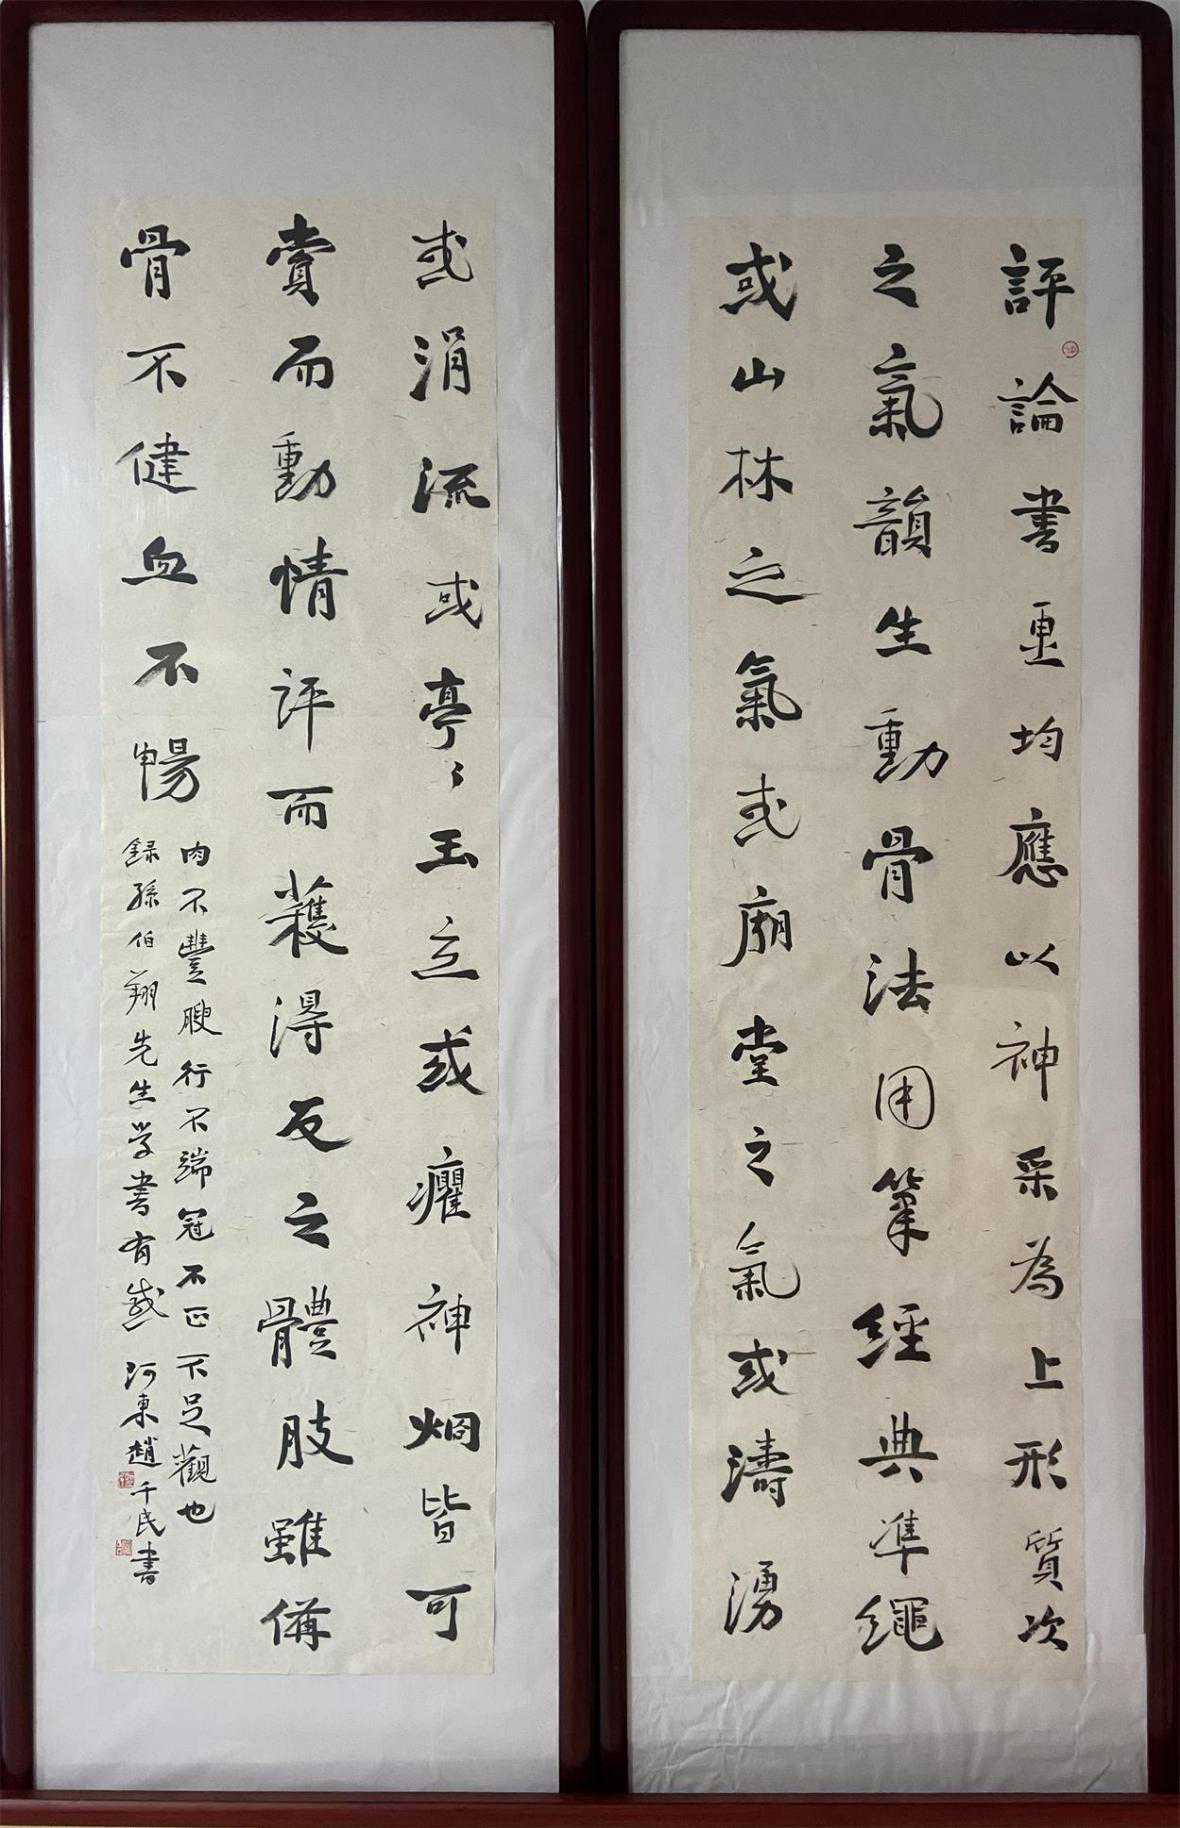 評論書畫均應以神采為上形質次
之氣韻生動骨法用筆經典準繩
或山林之氣或廟堂之氣或濤湧
或涓流或亭亭玉立或癯神烟皆可
賞而動情評而獲得反之體肢雖備
骨不健血不暢
肉不豐腴行不端冠不正不足觀也
錄孫伯翔先生學書有感 河東趙千民書